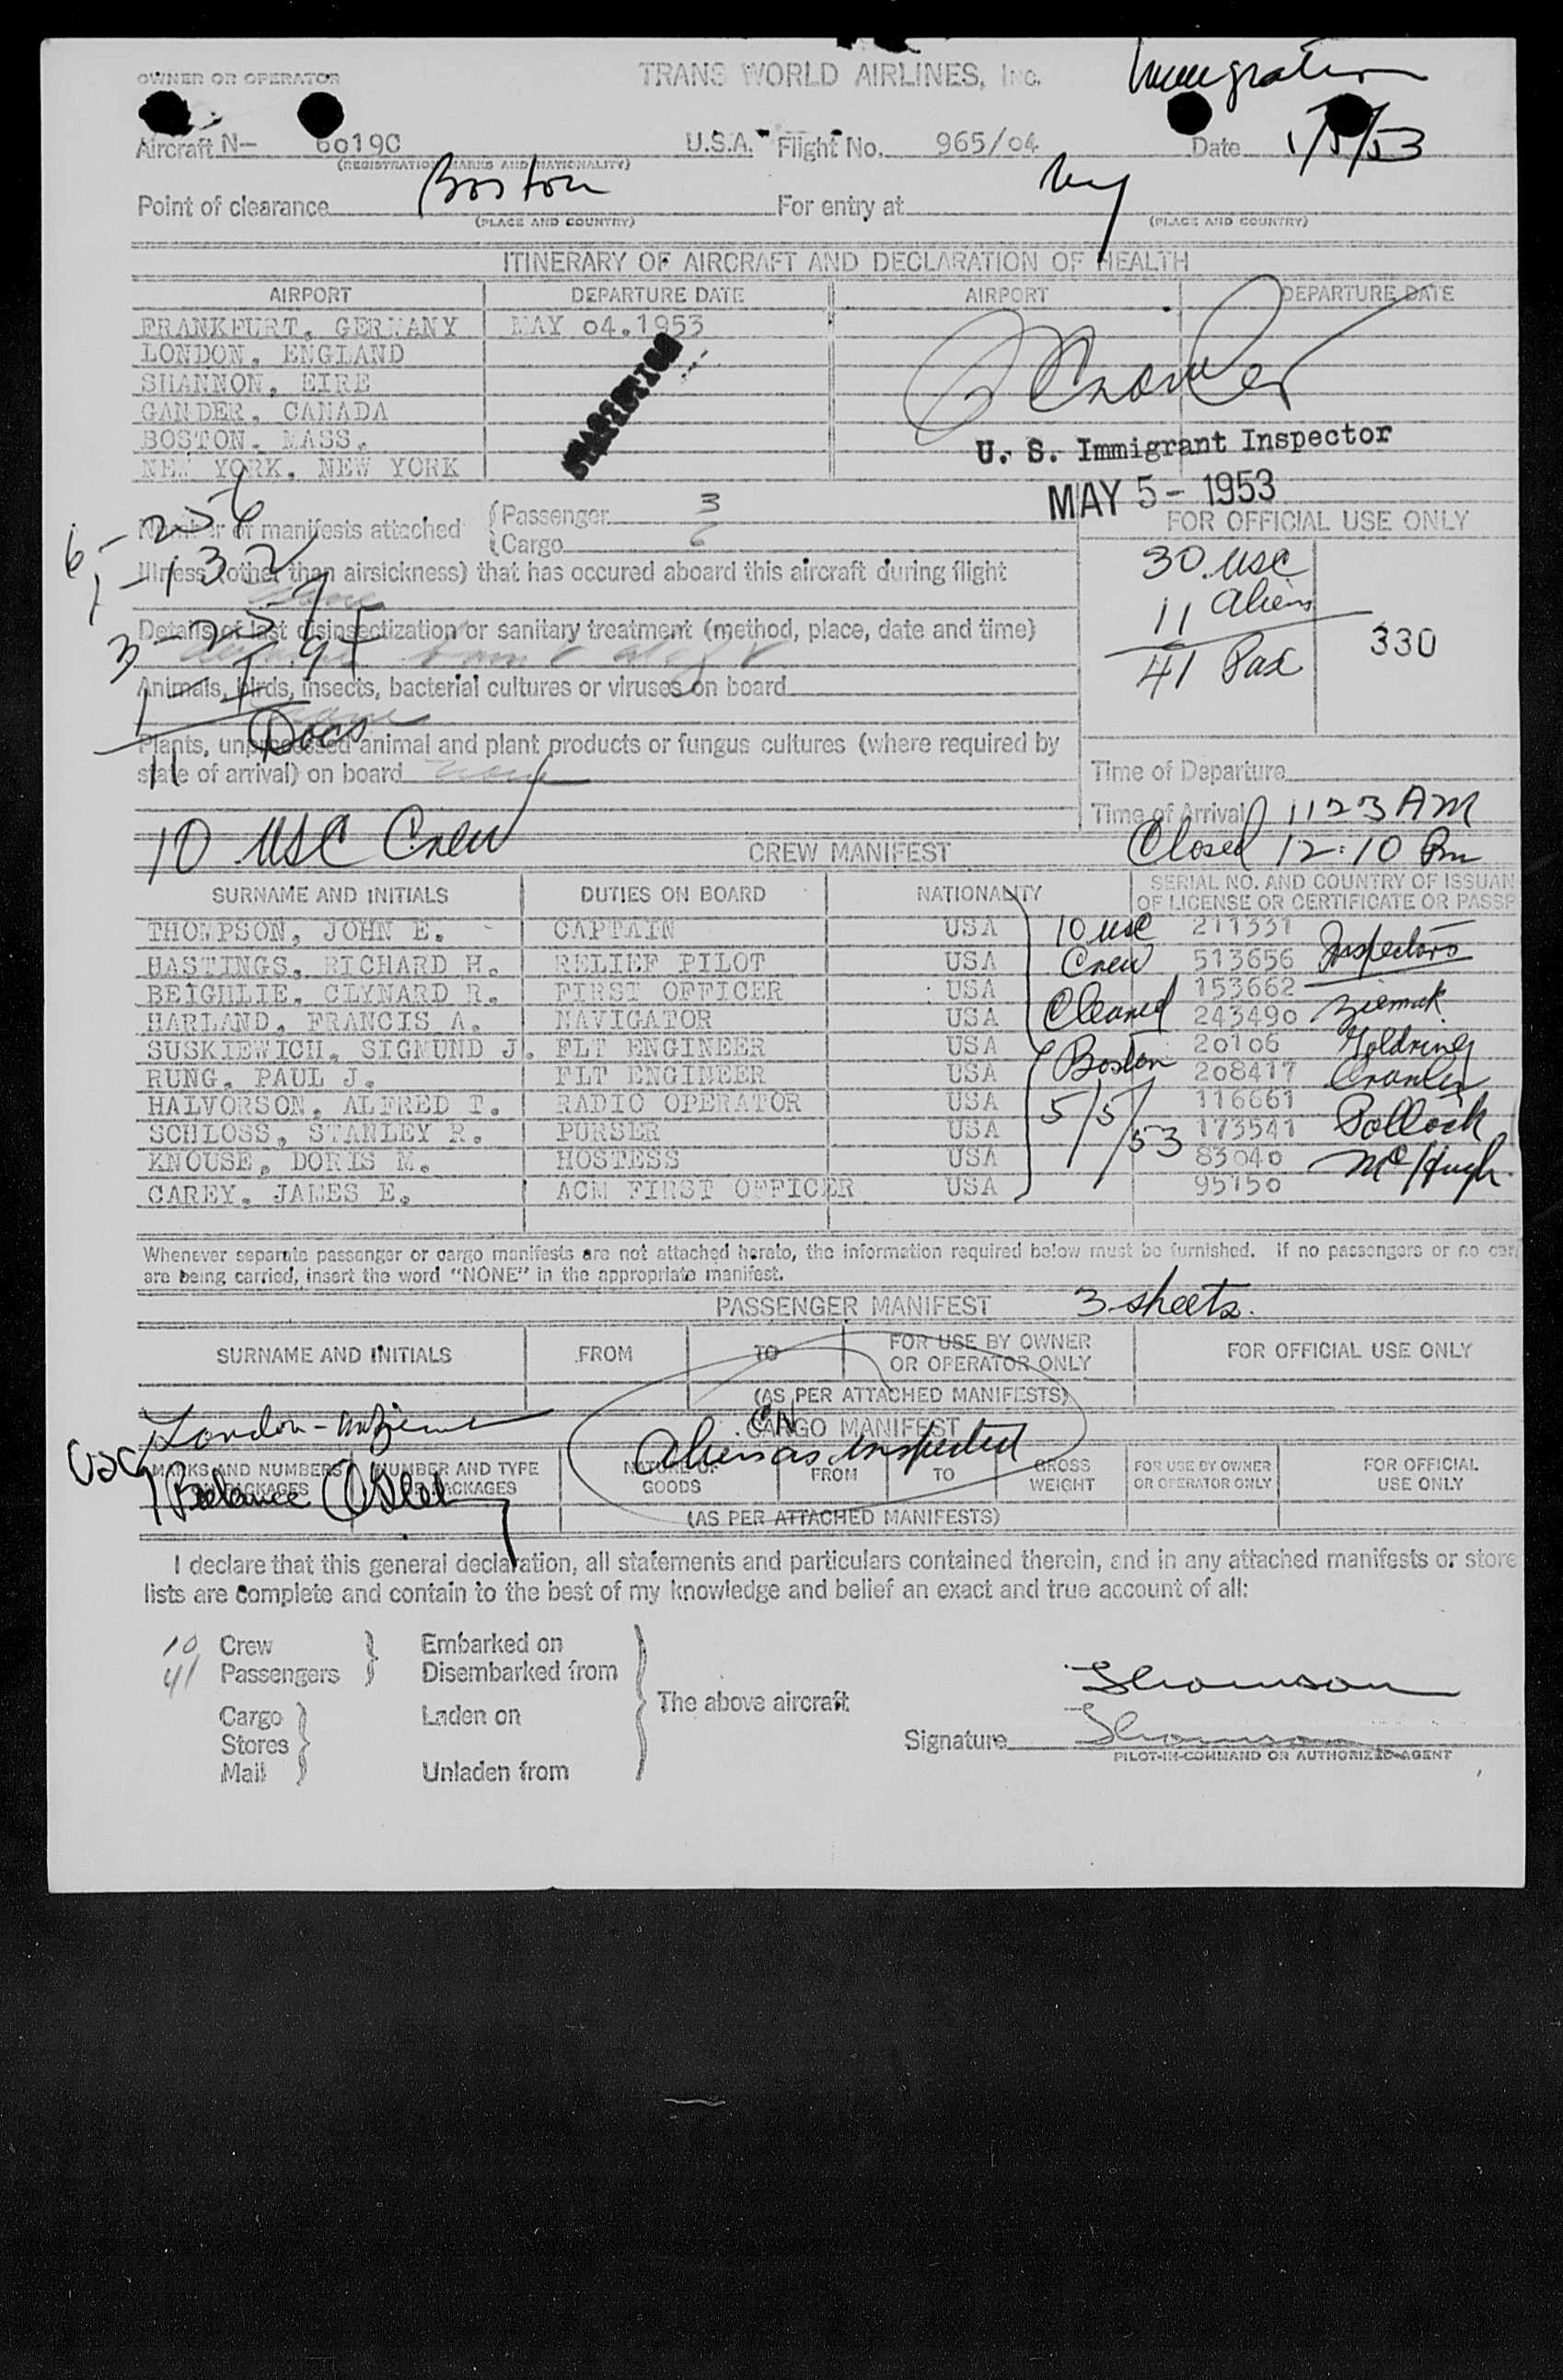 OWNER OR OPERATOR TRANS WORLD AIRLINES, Inc. Immigration
Aircraft N- 6019C U.S.A. Flight No. 965/04 Date 5/5/53
(REGISTRATION MARKS AND NATIONALITY)
Point of clearance Boston For entry at NY
(PLACE AND COUNTRY) (PLACE AND COUNTRY)
ITINERARY OF AIRCRAFT AND DECLARATION OF HEALTH
AIRPORT DEPARTURE DATE AIRPORT DEPARTURE DATE
FRANKFURT, GERMANY MAY 04.1953
LONDON, ENGLAND
SHANNON, EIRE
GANDER, CANADA
BOSTON, MASS.
NEW YORK, NEW YORK
U. S. Immigrant Inspector
MAY 5 - 1953
Number of manifests attached Passenger 3
Cargo 6
FOR OFFICIAL USE ONLY
30 USC
11 Aliens
41 Pax
330
Illness (other than airsickness) that has occured aboard this aircraft during flight
None
Details of last disinsectization or sanitary treatment (method, place, date and time)
Animals, birds, insects, bacterial cultures or viruses on board
None
11 Docs
Plants, unprocessed animal and plant products or fungus cultures (where required by
state of arrival) on board None
Time of Departure
Time of Arrival 1123 AM
10 USC Crew
CREW MANIFEST Closed 12:10 Pm
SURNAME AND INITIALS DUTIES ON BOARD NATIONALITY SERIAL NO. AND COUNTRY OF ISSUAN
OF LICENSE OR CERTIFICATE OR PASSP
THOMPSON, JOHN E. CAPTAIN USA 10 USC 211331 Inspectors
HASTINGS, RICHARD H. RELIEF PILOT USA Crew 513656
BEIGHLIE, CLYNARD R. FIRST OFFICER USA 153662
HARLAND, FRANCIS A. NAVIGATOR USA Cleared 243490
SUSKIEWICH, SIGMUND J. FLT ENGINEER USA 20106 Goldring
RUNG, PAUL J. FLT ENGINEER USA Boston 208417 Cronier
HALVORSON, ALFRED T. RADIO OPERATOR USA 5/5/53 116661 Pollock
SCHLOSS, STANLEY R. PURSER USA 173541
KNOUSE, DORIS M. HOSTESS USA 83040 McHugh
CAREY, JAMES E. ACM FIRST OFFICER USA 95150
Whenever separate passenger or cargo manifests are not attached hereto, the information required below must be furnished. If no passengers or no car
are being carried, insert the word "NONE" in the appropriate manifest.
PASSENGER MANIFEST 3 sheets.
SURNAME AND INITIALS FROM TO FOR USE BY OWNER
OR OPERATOR ONLY FOR OFFICIAL USE ONLY
(AS PER ATTACHED MANIFESTS)
CARGO MANIFEST
London
USC Aliens as inspected
MARKS AND NUMBERS NUMBER AND TYPE NATURE OF GOODS FROM TO GROSS WEIGHT FOR USE BY OWNER OR OPERATOR ONLY FOR OFFICIAL USE ONLY
PACKAGES PACKAGES
Balance
(AS PER ATTACHED MANIFESTS)
I declare that this general declaration, all statements and particulars contained therein, and in any attached manifests or store
lists are complete and contain to the best of my knowledge and belief an exact and true account of all:
10 Crew Embarked on
41 Passengers Disembarked from
The above aircraft
Cargo Laden on
Stores
Mail Unladen from
Thomson
Signature Thomson
PILOT-IN-COMMAND OR AUTHORIZED AGENT